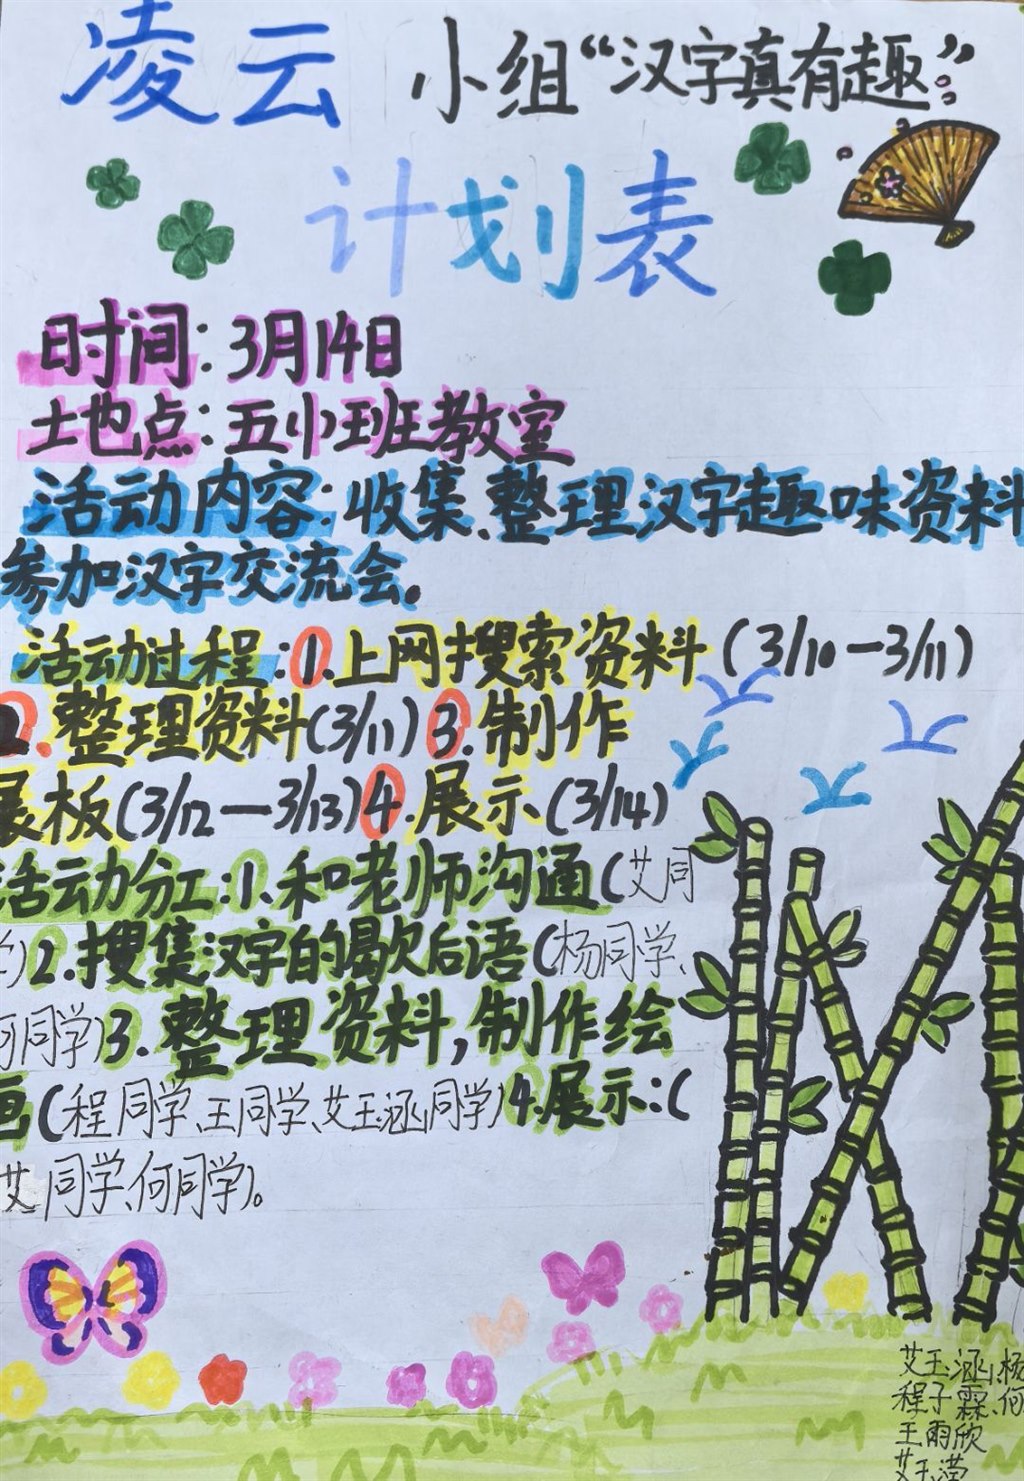 凌云小组“汉字真有趣”
计划表
时间:3月14日
地点:五小班教室
活动内容:收集、整理汉字趣味资料
参加汉字交流会。
活动过程:1.上网搜索资料(3/10—3/11)
2.整理资料(3/11)3.制作
展板(3/12—3/13)4.展示(3/14)
活动分工:1.和老师沟通(艾同
学)2.搜集汉字的歇后语(杨同学、
何同学)3.整理资料,制作绘
画(程同学、王同学、艾玉涵同学)4.展示:(
艾同学、何同学)。
艾玉涵、杨
程子霖、何
王雨欣
艾玉滢